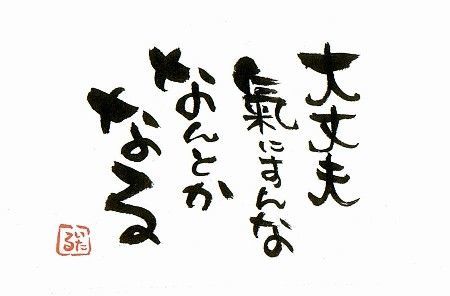 大丈夫
氣にすんな
なんとか
なる
いたる